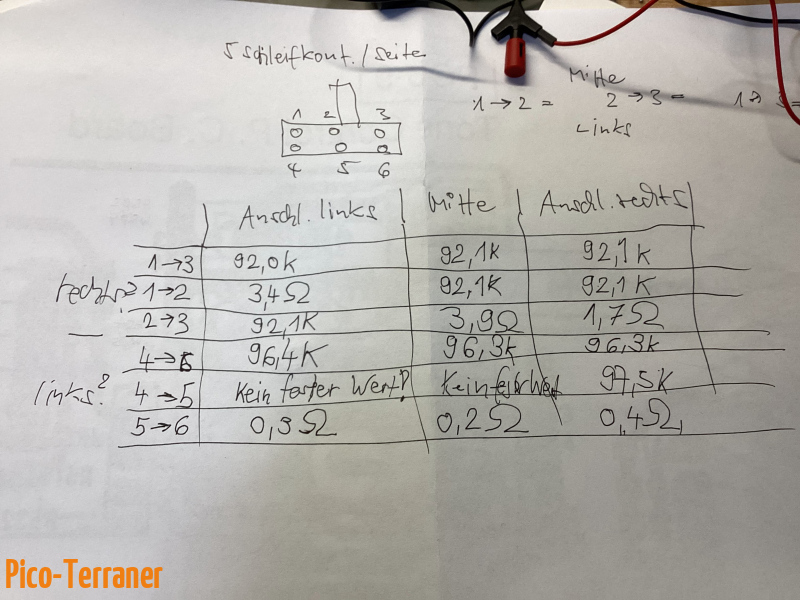 5 Schleifkont./Seite
Mitte
1→2 = 2→3 = 1→3 =
Links
1 2 3
4 5 6
Anschl. links Mitte Anschl. rechts
1→3 92,0k 92,1k 92,1k
rechts? 1→2 3,4Ω 92,1k 92,1k
2→3 92,1k 3,9Ω 1,7Ω
4→6 96,4k 96,3k 96,3k
links? 4→5 Kein fester Wert? Kein fester Wert 97,5k
5→6 0,3Ω 0,2Ω 0,4Ω
Pico-Terraner